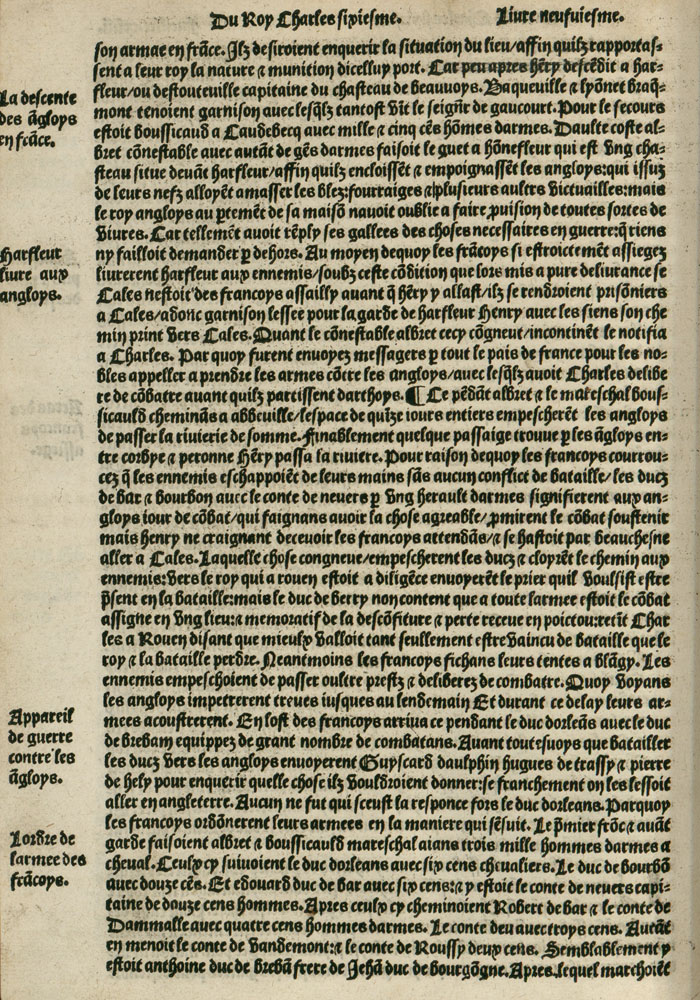 Du Roy Charles sixiesme. Livre neufuiesme.
son armae en frāce. Ilz desiroient enquerir la situation du lieu/affin quilz rapportas-
sent a leur roy la nature ⁊ munition dicelluy port. Car peu apres hēry descēdit a har-
La descente
des āgloys
en frāce.
fleur/ou destouteuille capitaine du chasteau de beauuoys. Baqueuille ⁊ lyōnet braq̄-
mont tenoient garnison auec lesq̄lz tantost vīt le seignr̄ de gaucourt. Pour le secours
estoit boussicauld a Caudebecq auec mille ⁊ cinq cēs hōmes darmes. Daultre coste al-
bret cōnestable auec autāt de gēs darmes faisoit le guet a hōnefleur qui est vng cha-
steau situe deuāt harfleur/affin quilz encloissēt ⁊ empoignassēt les angloys:qui issuz
de leurs nefz alloyēt amasser les blez:fourraiges ⁊ plusieurs aultrs victuailles:mais
le roy angloys au ꝑtemēt de sa maisō nauoit oublie a faire ꝓuision de toutes sortes de
viures. Car tellemēt auoit rēply ses gallees des choses necessaires en guerre:q̄ riens
Harfleur
liure aux
angloys.
ny failloit demander ꝑ dehors. Au moyen dequoy les frācoys si estroictemēt assiegez
liurerent harfleur aux ennemis/soubz ceste cōdition que lors mis a pure deliurance se
Cales nestoit des francoys assailly auant q̄ hēry y allast/ilz se rendroient prisōniers
a Cales/adonc garnison lessee pour la garde de harfleur Henry auec les siens son che
min print vers Cales. Quant le cōnestable albret cecy cōgneut/incontinēt le notifia
a Charles. Par quoy furent enuoyez messagers ꝑ tout le pais de france pour les no-
bles appeller a prendre les armes cōtre les angloys/auec lesq̄lz auoit Charles delibe
re de cōbatre auant quilz partissent darthoys. ¶ Ce pēdāt albret ⁊ le mareschal bous-
sicauld cheminās a abbeuille/lespace de quīze iours entiers empescherēt les angloys
de passer la riuierie de somme. Finablement quelque passaige trouue ꝑ les āgloys en-
tre corbye ⁊ peronne Hēry passa la riuiere. Pour raison dequoy les francoys courrou-
cez q̄ les ennemis eschappoiēt de leurs mains sās aucun conflict de bataille/les ducz
de bar ⁊ bourbon auec le conte de neuers ꝑ vng herault darmes signifierent aux an-
gloys iour de cōbat/qui faignans auoir la chose agreable/ꝓmirent le cōbat soustenir
mais henry ne craignant deceuoir les francoys attendās/⁊ se hastoit par beauchesne
aller a Cales. Laquelle chose congneue/empescherent les ducz ⁊ cloyrēt le chemin aux
ennemis:vers le roy qui a rouen estoit a diligēce enuoyerēt le prier quil voulsist estre
p̄sent en la bataille:mais le duc de berry non content que a toute larmee estoit le cōbat
assigne en vng lieu:⁊ memoratif de la descōfiture ⁊ perte receue en poictou:retīt Char
les a Rouen disant que mieulx valloit tant seullement estre vaincu de bataille que le
roy ⁊ la bataille perdre. Neantmoins les francoys fichans leurs tentes a blāgy. Les
ennemis empeschoient de passer oultre prestz ⁊ deliberez de combatre. Quoy voyans
Appareil
de guerre
contre les
āgloys.
les angloys impetrerent treues iusques au lendemain Et durant ce delay leurs ar-
mees acoustrerent. En lost des francoys arriua ce pendant le duc dorleās auec le duc
de brebam equippez de grant nombre de combatans. Auant toutesuoys que batailler
les ducz vers les angloys enuoyerent Guyscard daulphin hugues de trassy ⁊ pierre
de hely pour enquerir quelle chose ilz vouldroient donner:se franchement on les lessoit
aller en angleterre. Aucun ne fut qui sceust la responce fors le duc dorleans. Parquoy
Lordre de
larmee des
frācoys.
les francoys ordōnerent leurs armees en la maniere qui sēsuit. Le p̄mier frōc ⁊ auāt
garde faisoient albret ⁊ boussicauld mareschal aians trois mille hommes darmes a
cheual. Ceulx cy suiuoient le duc dorleans auec six cens cheualiers. Le duc de bourbō
auec douze cēs. Et edouard duc de bar auec six cens:⁊ y estoit le conte de neuers capi-
taine de douze cens hommes. Apres ceulx cy cheminoient Robert de bar ⁊ le conte de
Dammalle auec quatre cens hommes darmes. Le conte deu auec troys cens. Autāt
en menoit le conte de Vandemont:⁊ le conte de Roussy deux cens. Semblablement y
estoit anthoine duc de brebā frere de Jehā duc de bourgōgne. Apres lequel marchoiēt